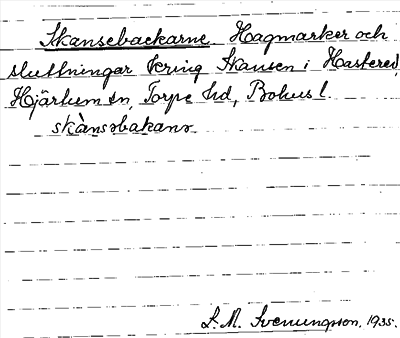 Skansebackarne. Hagmarker och
sluttningar kring Skansen i Hastered,
Hjärtum sn, Torpe hd, Bohus l.
skànsəbakanɤ
S. M. Svenungsson. 1935.